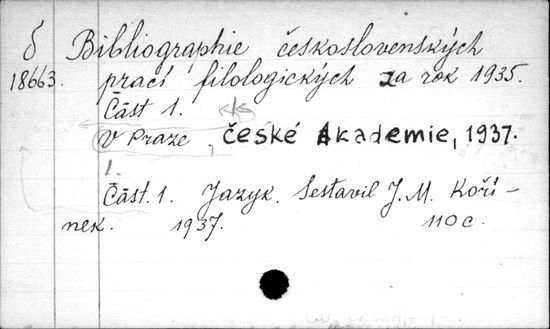 δ Bibliographie československých
18663. prací filologických za rok 1935.
Část 1.
V Praze, České Akademie, 1937.
1.
Část. 1. Jazyk. Sestavil J. M. Koří-
nek. 1937. 110 c.